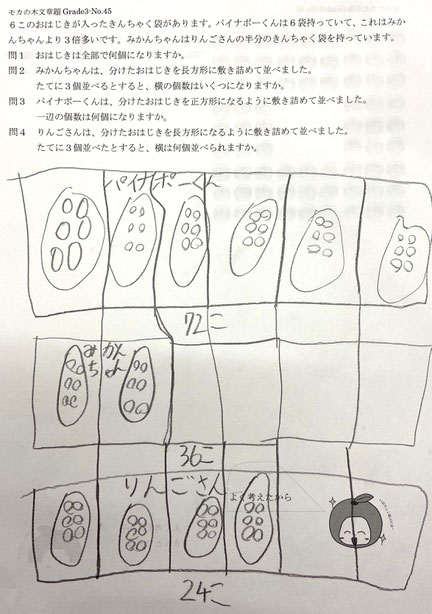 モカの木文章題 Grade3-No.45
6このおはじきが入ったきんちゃく袋があります。パイナポーくんは6袋持っていて、これはみか
んちゃんより3倍多いです。みかんちゃんはりんごさんの半分のきんちゃく袋を持っています。
問1 おはじきは全部で何個になりますか。
問2 みかんちゃんは、分けたおはじきを長方形に敷き詰めて並べました。
たてに3個並べるとすると、横の個数はいくつになりますか。
問3 パイナポーくんは、分けたおはじきを正方形になるように敷き詰めて並べました。
一辺の個数は何個になりますか。
問4 りんごさんは、分けたおはじきを長方形になるように敷き詰めて並べました。
たてに3個並べたとすると、横は何個並べられますか。
パイナポーくん
72こ
みかん
ちゃん
36こ
りんごさん
よく考えたから
24こ